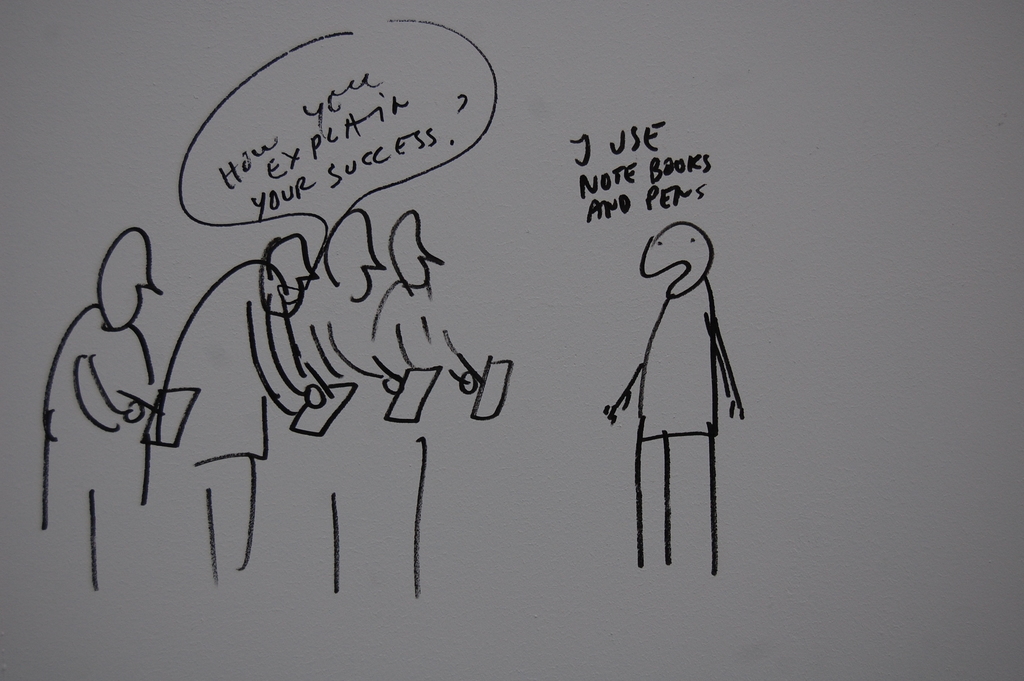 HOW YOU
EXPLAIN
YOUR SUCCESS.?
I USE
NOTE BOOKS
AND PENS